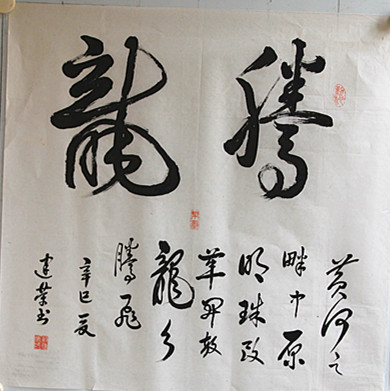 騰龍
黄河之
畔中原
明珠改
革開放
龍乡
騰飛
辛巳夏
建荣书